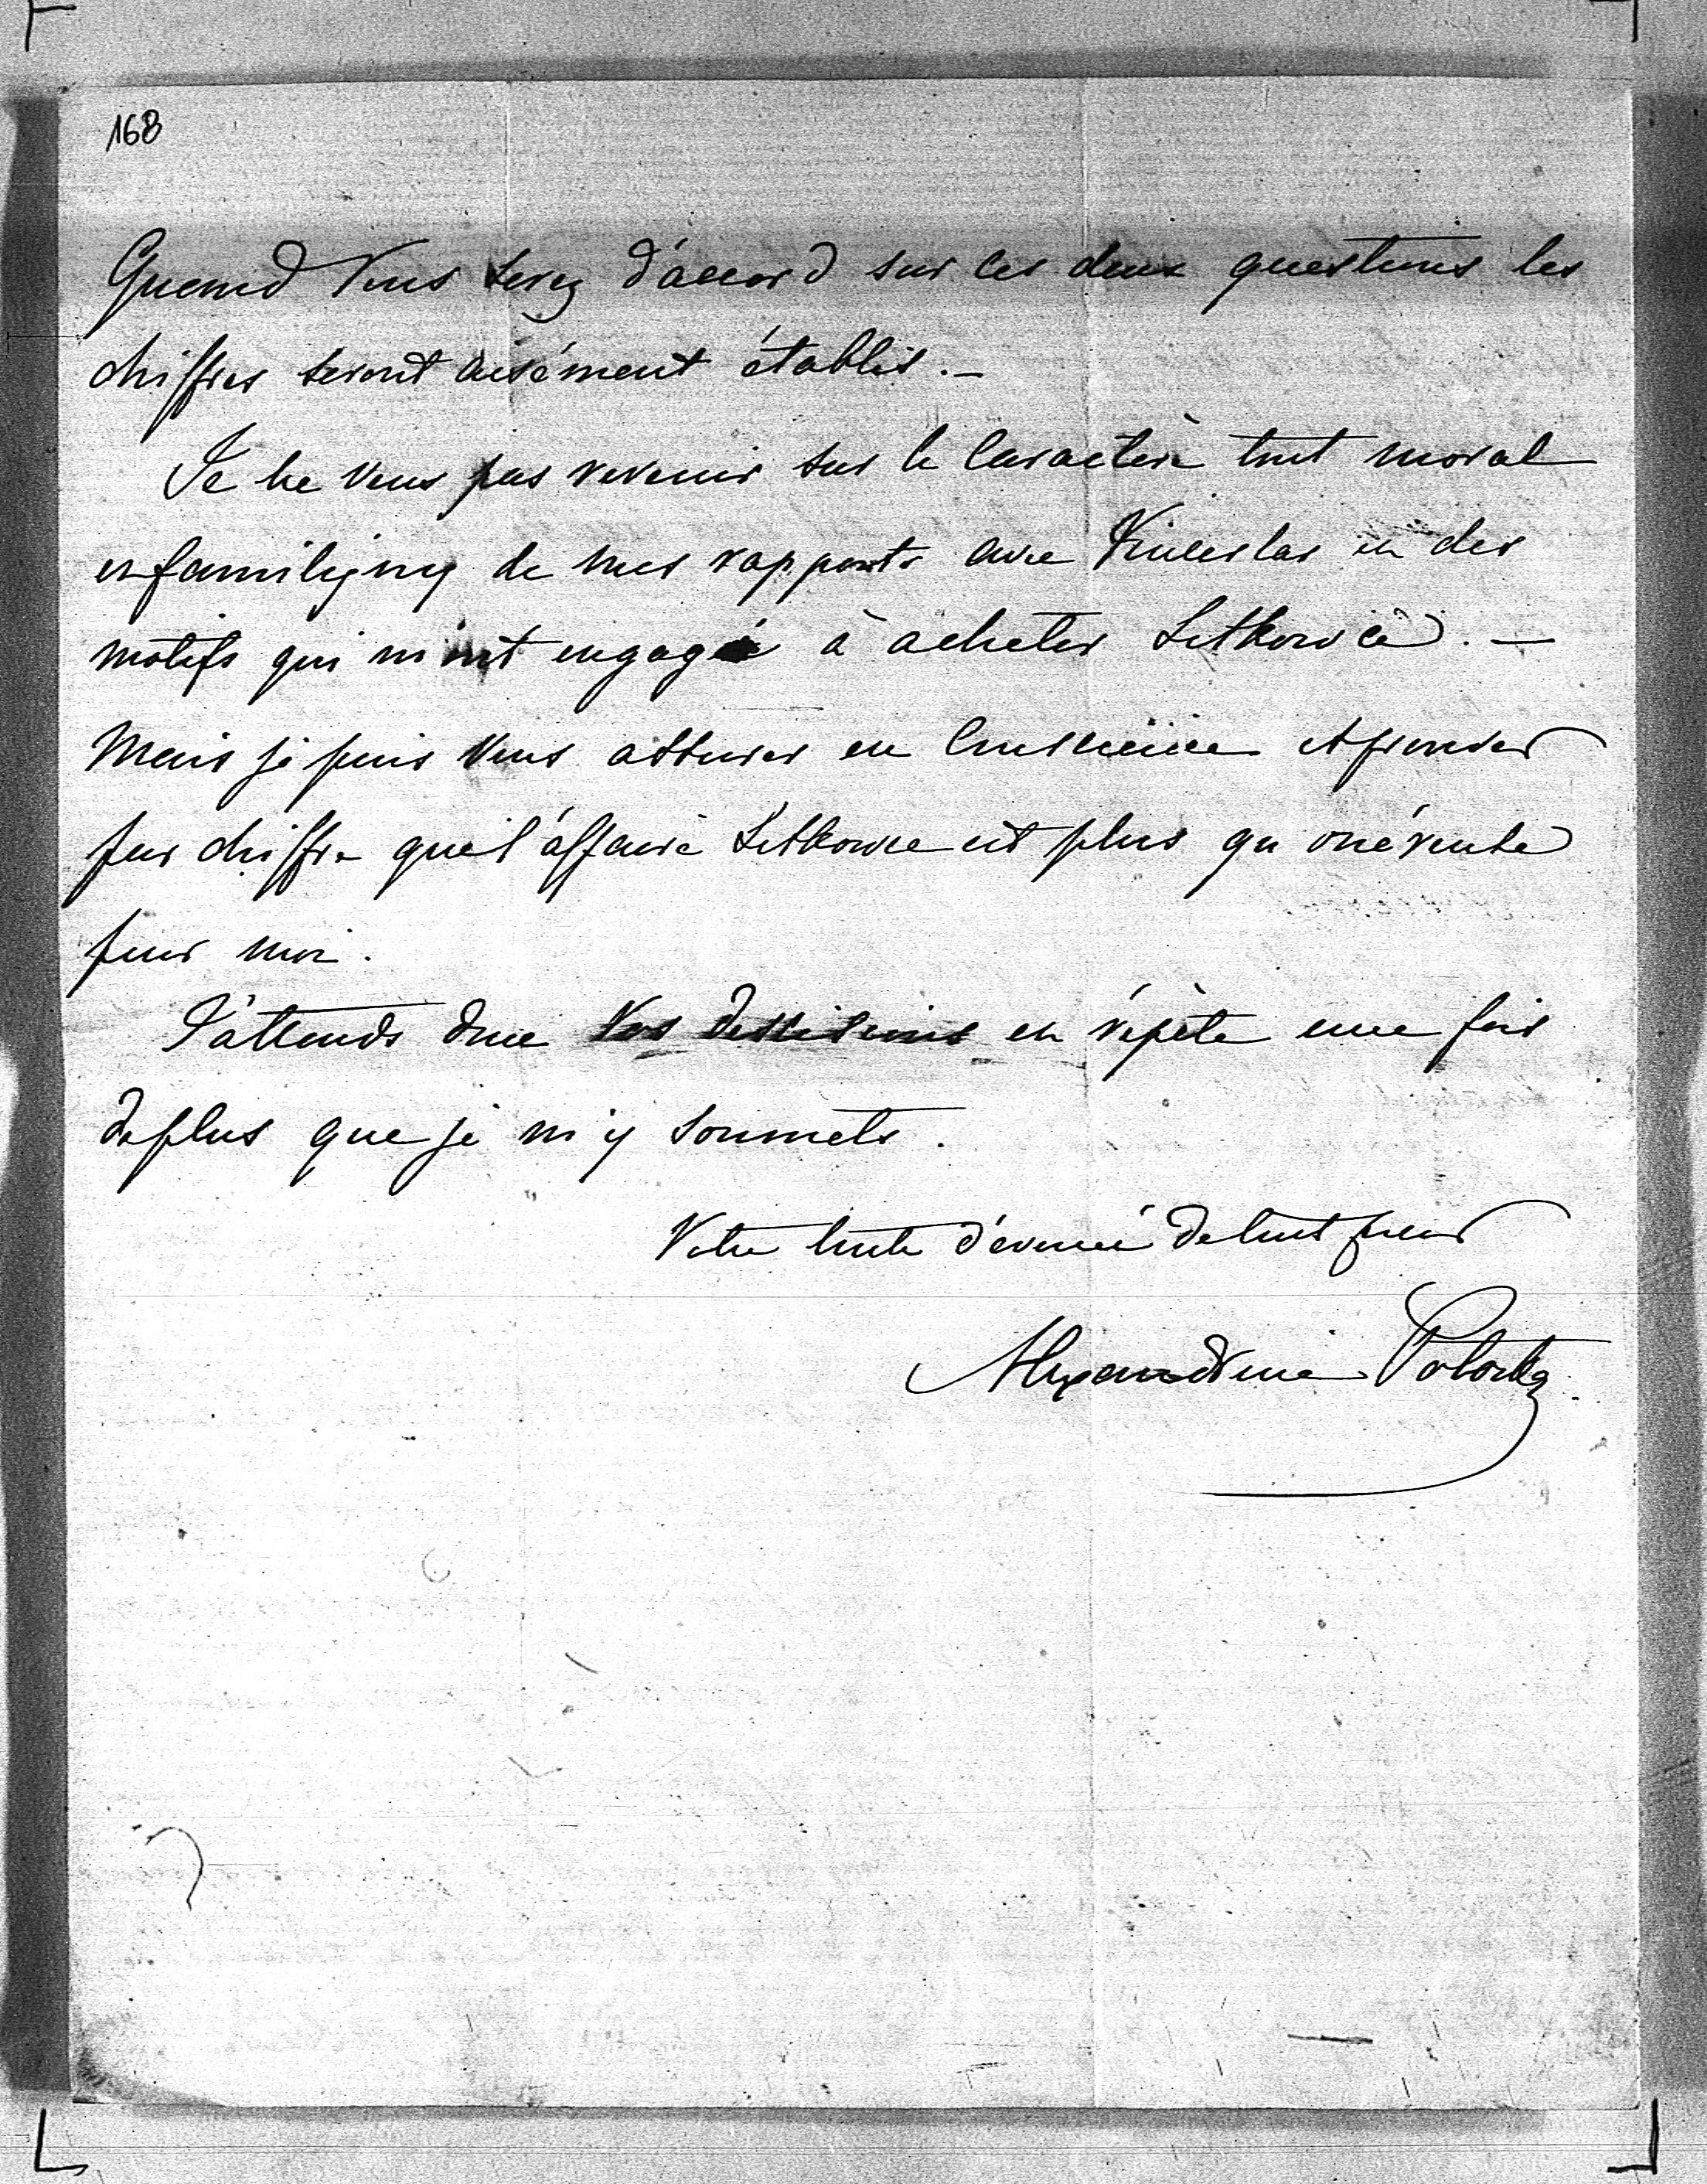 168
Quand Vous serez d'accord sur ces deux questions les
chiffres seront aisément établis. –
Je ne veux pas revenir sur le Caractère tout moral
de mes rapports avec et des
motifs qui m'ont engagée à acheter Litkowce. –
Mais je puis Vous assurer en Conscience et prouver
par chiffre que l'affaire Litkowce est plus qu'onéreuse
pour moi.
J'attends donc Vos dessisions et répète une fois
de plus que je m'y soumets.
Votre toute dévouée de tout coeur
Alexandrine Potocka